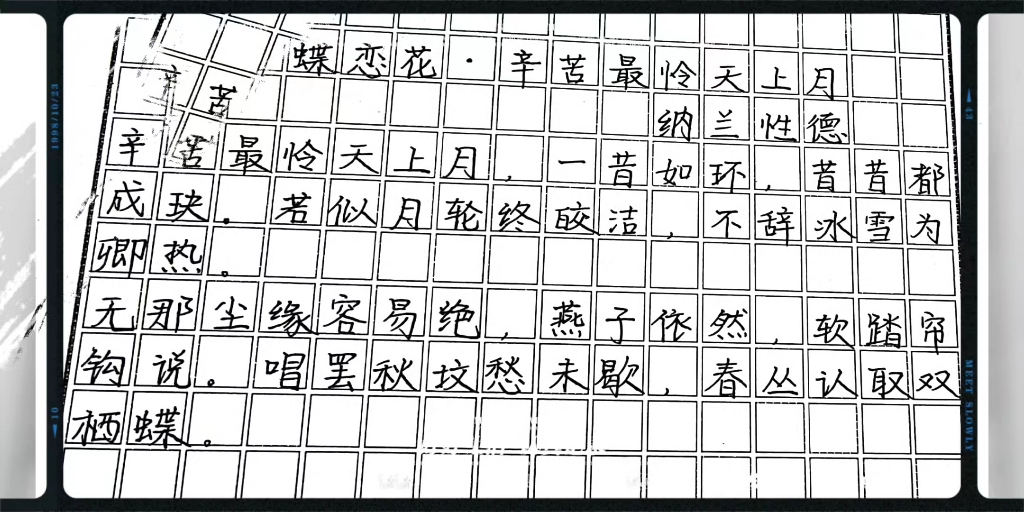 蝶恋花·辛苦最怜天上月
辛
苦
纳兰性德
辛苦最怜天上月，一昔如环，昔昔都
成玦。若似月轮终皎洁，不辞冰雪为
卿热。
无那尘缘容易绝，燕子依然，软踏帘
钩说。唱罢秋坟愁未歇，春丛认取双
栖蝶。
1998/10/23
10
43
MEET SLOWLY